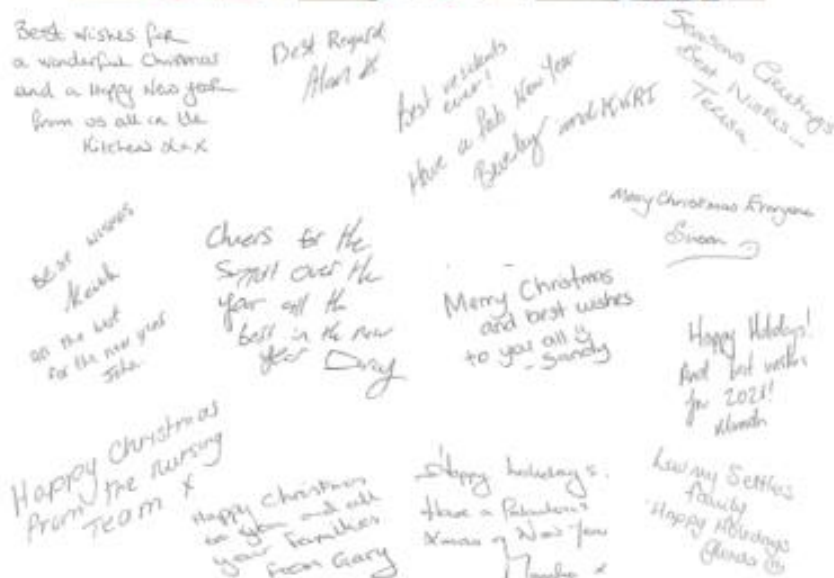 Best wishes for
a wonderful Christmas
and a Happy New year
from us all in the
Kitchen
Best Regard
Best residents
ever!
Have a Fab New Year
Beverley and
Seasons Greetings
Best Wishes...
Teresa
Merry Christmas Everyone
Susan
Best wishes
all the best
for the new year
John
Cheers for the
support over the
year all the
best in the new
year
Merry Christmas
and best wishes
to you all
- Sandy
Happy Holidays!
And best wishes
for 2021!
Happy Christmas
From the nursing
Team x
Happy Christmas
to you and all
your families
from Gary
Happy holidays.
Have a Fabulous
Xmas & New Year
x
family
Happy Holidays